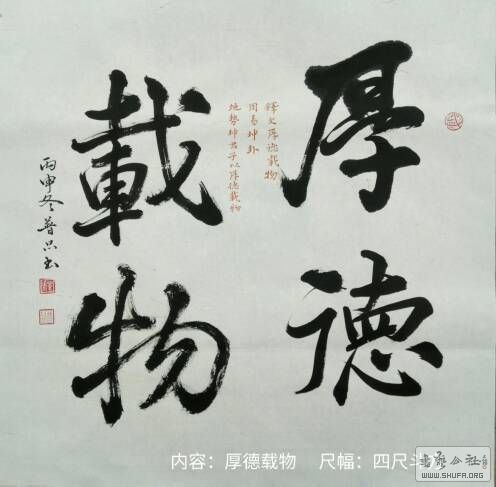 厚德
載物
释文厚德载物
周易坤卦
地势坤君子以厚德载物
丙申冬普只书
内容：厚德载物 尺幅：四尺斗
WWW.SHUFA.ORG